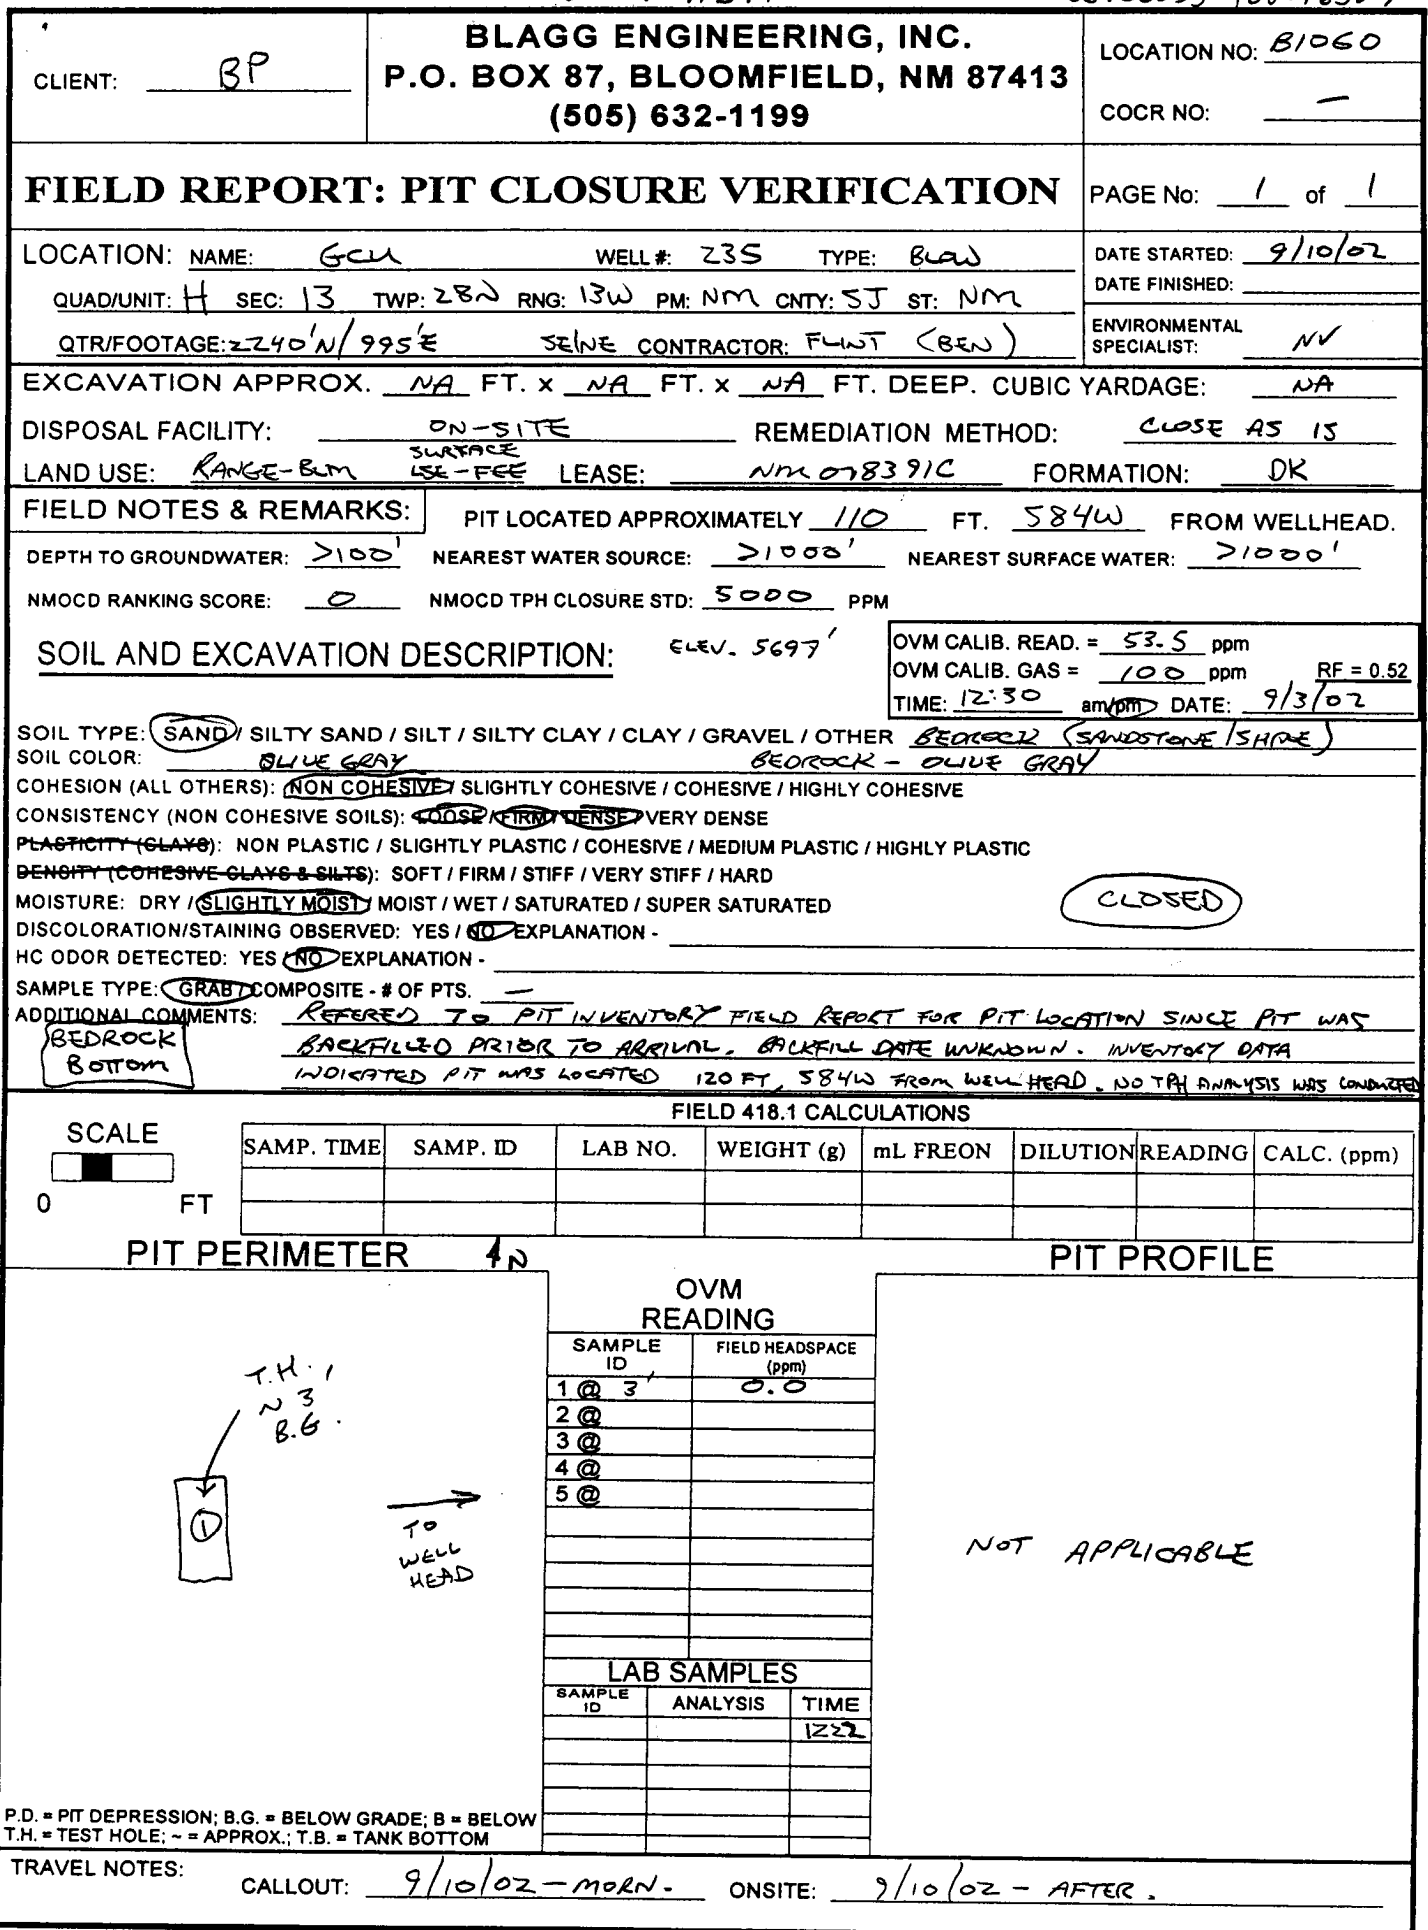 BLAGG ENGINEERING, INC.
P.O. BOX 87, BLOOMFIELD, NM 87413
(505) 632-1199
CLIENT: BP
LOCATION NO: B1060
COCR NO: —
FIELD REPORT: PIT CLOSURE VERIFICATION
PAGE No: 1 of 1
LOCATION: NAME: GCU WELL #: 235 TYPE: BLOW
QUAD/UNIT: H SEC: 13 TWP: 28N RNG: 13W PM: NM CNTY: SJ ST: NM
QTR/FOOTAGE: 2240'N/995'E SE/NE CONTRACTOR: FLINT (BEN)
DATE STARTED: 9/10/02
DATE FINISHED:
ENVIRONMENTAL SPECIALIST: NV
EXCAVATION APPROX. NA FT. x NA FT. x NA FT. DEEP. CUBIC YARDAGE: NA
DISPOSAL FACILITY: ON-SITE REMEDIATION METHOD: CLOSE AS IS
LAND USE: RANGE-BLM SURFACE LSE-FEE LEASE: NM 078391C FORMATION: DK
FIELD NOTES & REMARKS: PIT LOCATED APPROXIMATELY 110 FT. S84W FROM WELLHEAD.
DEPTH TO GROUNDWATER: >100' NEAREST WATER SOURCE: >1000' NEAREST SURFACE WATER: >1000'
NMOCD RANKING SCORE: 0 NMOCD TPH CLOSURE STD: 5000 PPM
SOIL AND EXCAVATION DESCRIPTION: ELEV. 5697'
OVM CALIB. READ. = 53.5 ppm
OVM CALIB. GAS = 100 ppm RF = 0.52
TIME: 12:30 am/pm DATE: 9/3/02
SOIL TYPE: SAND / SILTY SAND / SILT / SILTY CLAY / CLAY / GRAVEL / OTHER BEDROCK (SANDSTONE/SHALE)
SOIL COLOR: OLIVE GRAY BEDROCK - OLIVE GRAY
COHESION (ALL OTHERS): NON COHESIVE / SLIGHTLY COHESIVE / COHESIVE / HIGHLY COHESIVE
CONSISTENCY (NON COHESIVE SOILS): LOOSE / FIRM / DENSE / VERY DENSE
PLASTICITY (CLAYS): NON PLASTIC / SLIGHTLY PLASTIC / COHESIVE / MEDIUM PLASTIC / HIGHLY PLASTIC
DENSITY (COHESIVE CLAYS & SILTS): SOFT / FIRM / STIFF / VERY STIFF / HARD
MOISTURE: DRY / SLIGHTLY MOIST / MOIST / WET / SATURATED / SUPER SATURATED
CLOSED
DISCOLORATION/STAINING OBSERVED: YES / NO EXPLANATION -
HC ODOR DETECTED: YES / NO EXPLANATION -
SAMPLE TYPE: GRAB / COMPOSITE - # OF PTS. —
ADDITIONAL COMMENTS: REFERED TO PIT INVENTORY FIELD REPORT FOR PIT LOCATION SINCE PIT WAS
BACKFILLED PRIOR TO ARRIVAL. BACKFILL DATE UNKNOWN. INVENTORY DATA
INDICATED PIT WAS LOCATED 120 FT, S84W FROM WELL HEAD. NO TPH ANALYSIS WAS CONDUCTED
BEDROCK
BOTTOM
FIELD 418.1 CALCULATIONS
SCALE
0 FT
SAMP. TIME SAMP. ID LAB NO. WEIGHT (g) mL FREON DILUTION READING CALC. (ppm)
PIT PERIMETER N
PIT PROFILE
OVM
READING
SAMPLE ID FIELD HEADSPACE (ppm)
1 @ 3' 0.0
2 @
3 @
4 @
5 @
T.H.
~ 3'
B.G.
1
TO
WELL
HEAD
NOT APPLICABLE
LAB SAMPLES
SAMPLE ID ANALYSIS TIME
1222
P.D. = PIT DEPRESSION; B.G. = BELOW GRADE; B = BELOW
T.H. = TEST HOLE; ~ = APPROX.; T.B. = TANK BOTTOM
TRAVEL NOTES: CALLOUT: 9/10/02 - MORN. ONSITE: 9/10/02 - AFTER.